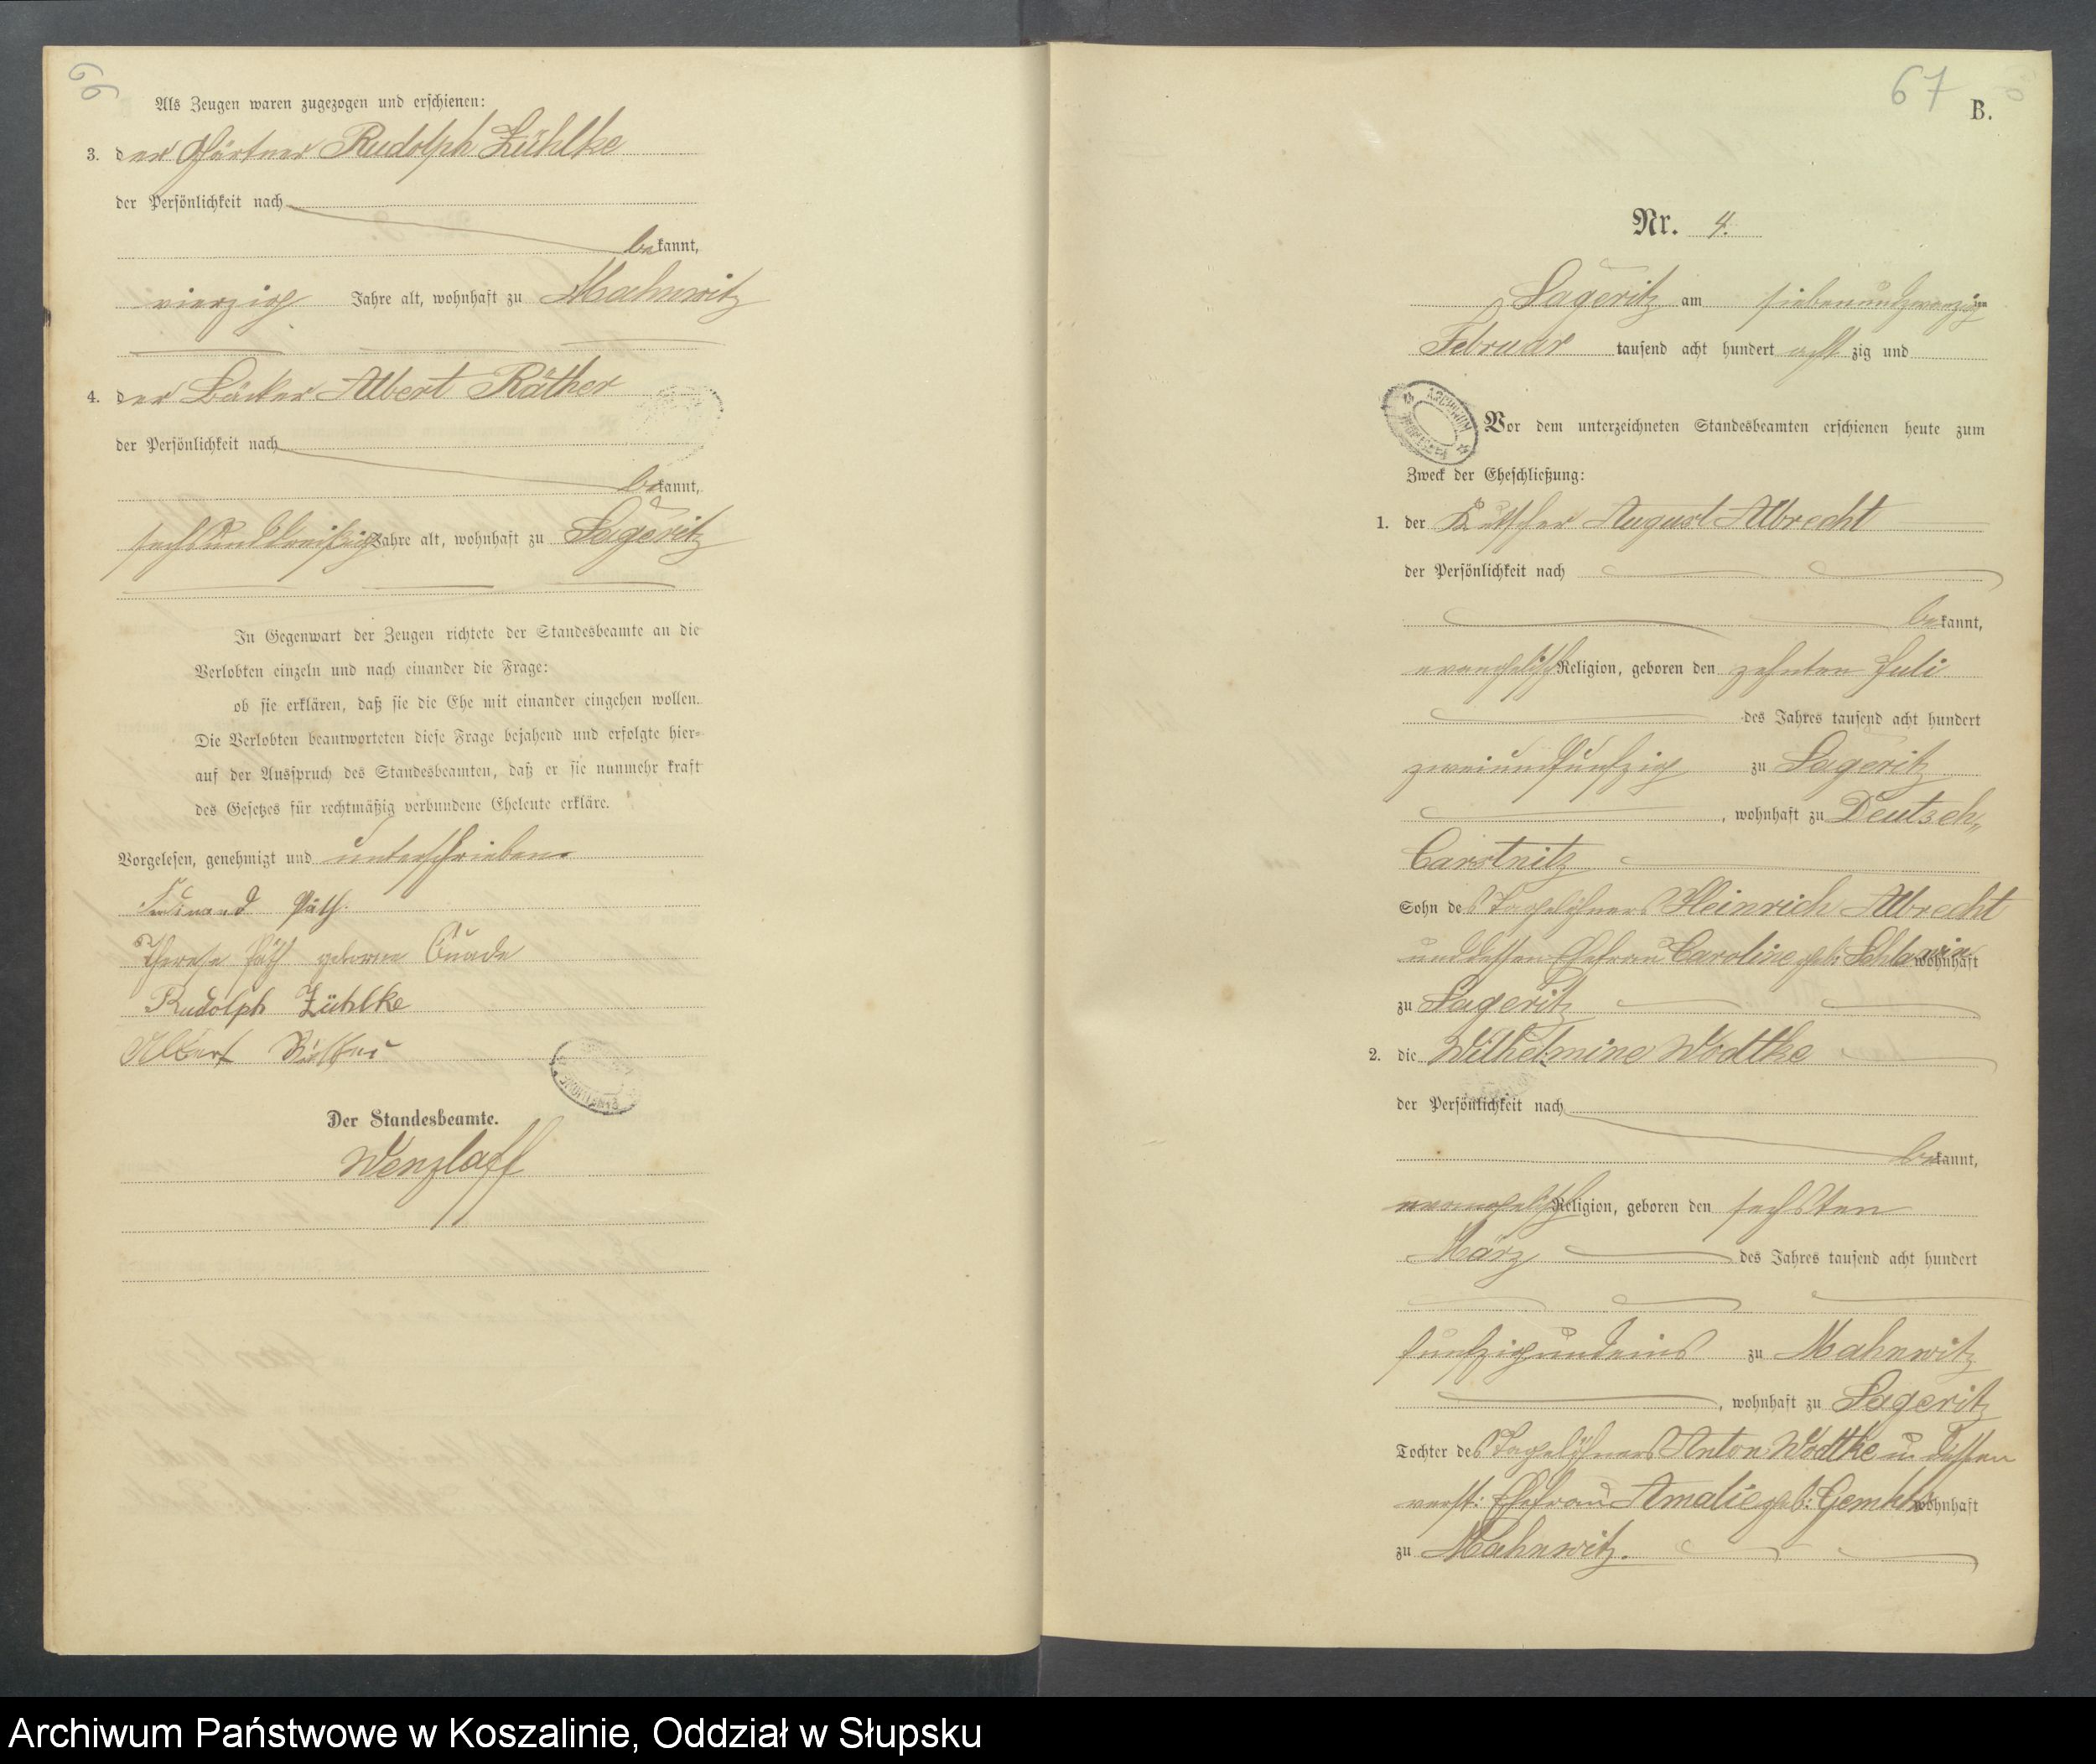 66
Als Zeugen waren zugezogen und erschienen:
3. der Gärtner Rudolph Zühlke
der Persönlichkeit nach
bekannt,
vierzig Jahre alt, wohnhaft zu Mahnwitz
4. der Bäcker Albert Räther
der Persönlichkeit nach
bekannt,
sechsunddreißig Jahre alt, wohnhaft zu Lageritz
In Gegenwart der Zeugen richtete der Standesbeamte an die
Verlobten einzeln und nach einander die Frage:
ob sie erklären, daß sie die Ehe mit einander eingehen wollen.
Die Verlobten beantworteten diese Frage bejahend und erfolgte hier-
auf der Ausspruch des Standesbeamten, daß er sie nunmehr kraft
des Gesetzes für rechtmäßig verbundene Eheleute erkläre.
Vorgelesen, genehmigt und unterschrieben
Ferdinand Päth
Therese Päth geborene Quade
Rudolph Zühlke
Albert Räther
Der Standesbeamte.
Wenzlaff
67
B.
Nr. 4.
Lageritz am siebenundzwanzigsten
Februar tausend acht hundert achtzig und
Vor dem unterzeichneten Standesbeamten erschienen heute zum
ARCHIWUM
Zweck der Eheschließung:
1. der Kutscher August Albrecht
der Persönlichkeit nach
bekannt,
evangelisch Religion, geboren den zehnten Juli
des Jahres tausend acht hundert
zweiundfünfzig zu Lageritz
, wohnhaft zu Deutsch-
Carstnitz
Sohn des Tagelöhners Heinrich Albrecht
und dessen Ehefrau Caroline geb: Schlawin wohnhaft
zu Lageritz
2. die Wilhelmine Wödtke
der Persönlichkeit nach
bekannt,
evangelisch Religion, geboren den sechsten
März des Jahres tausend acht hundert
funfzigundeins zu Mahnwitz
, wohnhaft zu Lageritz
Tochter des Tagelöhners Anton Wödtke u. dessen
verst: Ehefrau Amalie geb: wohnhaft
zu Mahnwitz.
Archiwum Państwowe w Koszalinie, Oddział w Słupsku